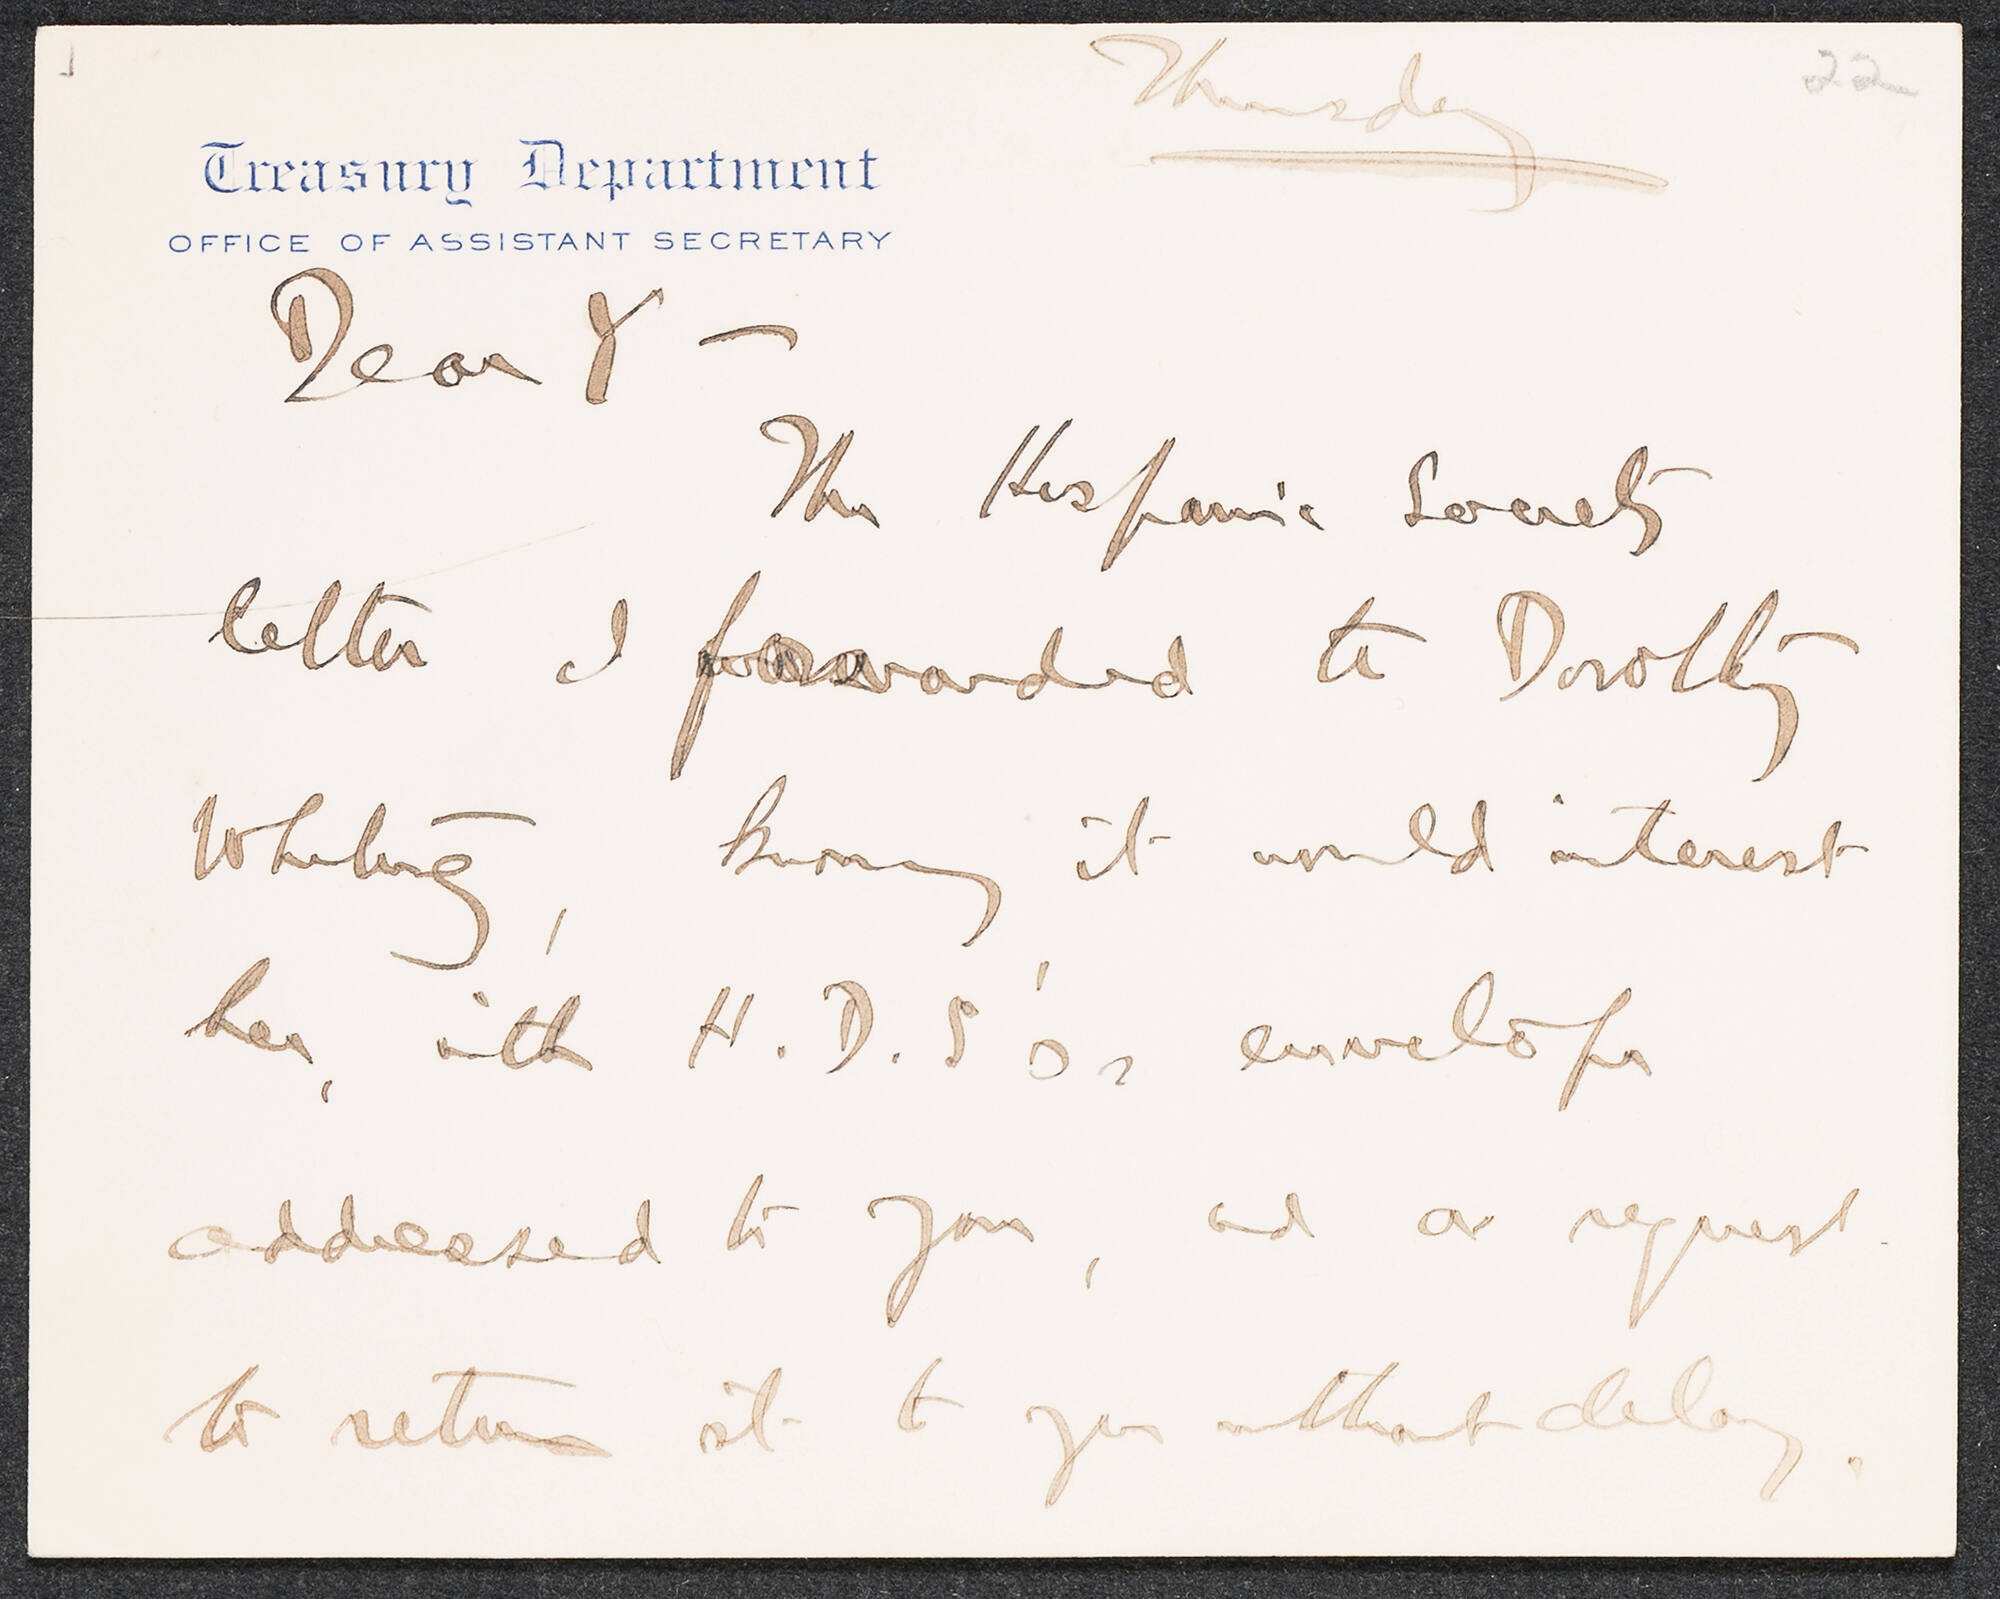 Thursday
22
Treasury Department
OFFICE OF ASSISTANT SECRETARY
Dear Y —
The Hispanic Society
letter I forwarded to Dorothy
Whiting, knowing it would interest
her, with H.D.S's envelope
addressed to you, and a request
to return it to you without delay.